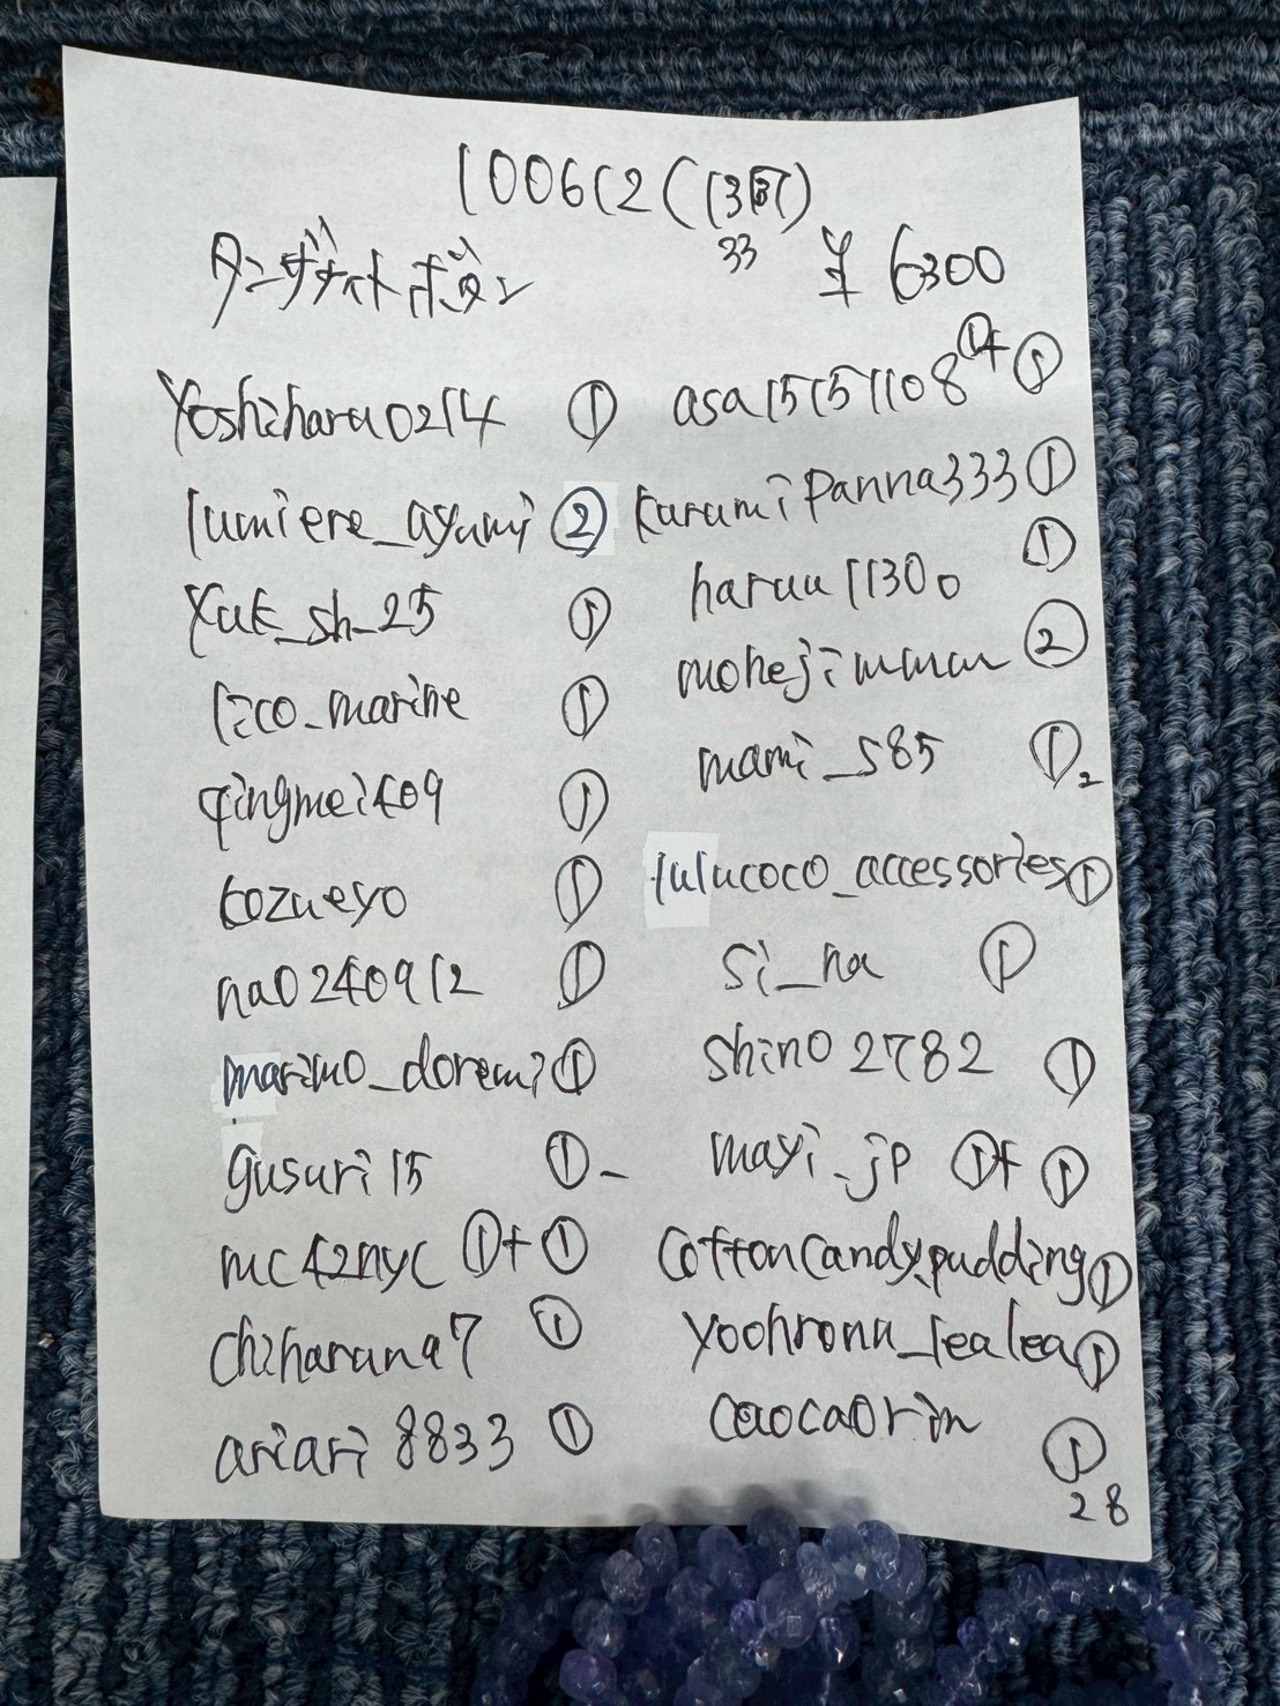 100612(
33
タンザナイトボタン ¥6300
Yoshiharu0214 ①
lumiere_ayumi ②
Yuk_sh_25 ①
lico_marine ①
qingmei409 ①
kozueyo ①
na0240912 ①
marimo_doremi ①
gusuri15 ① -
mc42nyc ①+①
chiharuna7 ①
ariari8833 ①
asa15151108 ①+①
karumipanna333 ①
haruu1130 ①
mohejimmm ②
mami_s85 ① 2
lulucoco_accessories ①
si_na ①
shino2782 ①
mayi_jp ①+①
cottoncandy.pudding ①
yoohronu_lealea ①
caocaorin ①
28